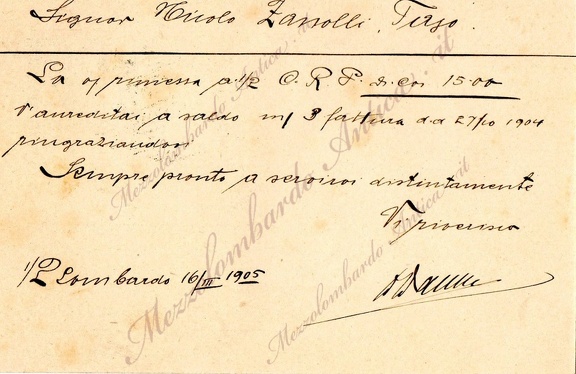 Signor Nicolo Zanolli, Tiezo.
La vs rimessa a 1/2 C. R. P. di Cor 15.00
V'accreditai a saldo m/ 3 fattura d.d 27/10 1904
ringraziandovi
Sempre pronto a servirvi distintamente
Vi riverisco
1/2 Lombardo 16/III 1905
Mezzolombardo Antica . it
Mezzolombardo Antica . it
Mezzolombardo Antica . it